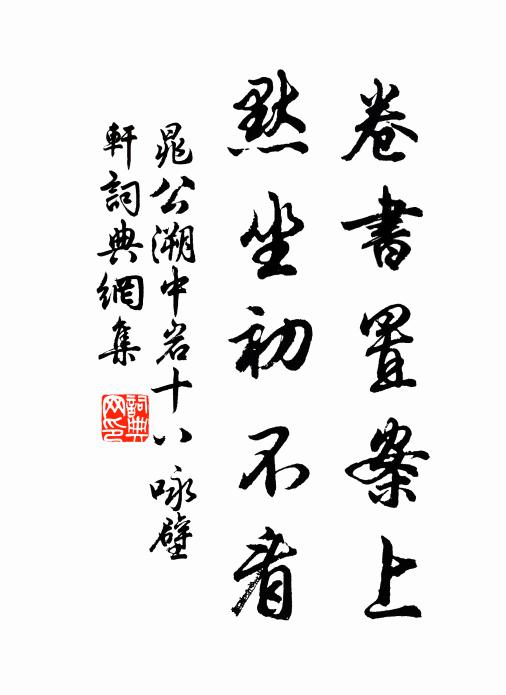 卷書置案上
默坐初不看
晁公溯中岩十八 咏壁
軒詞典網集
詞典网印